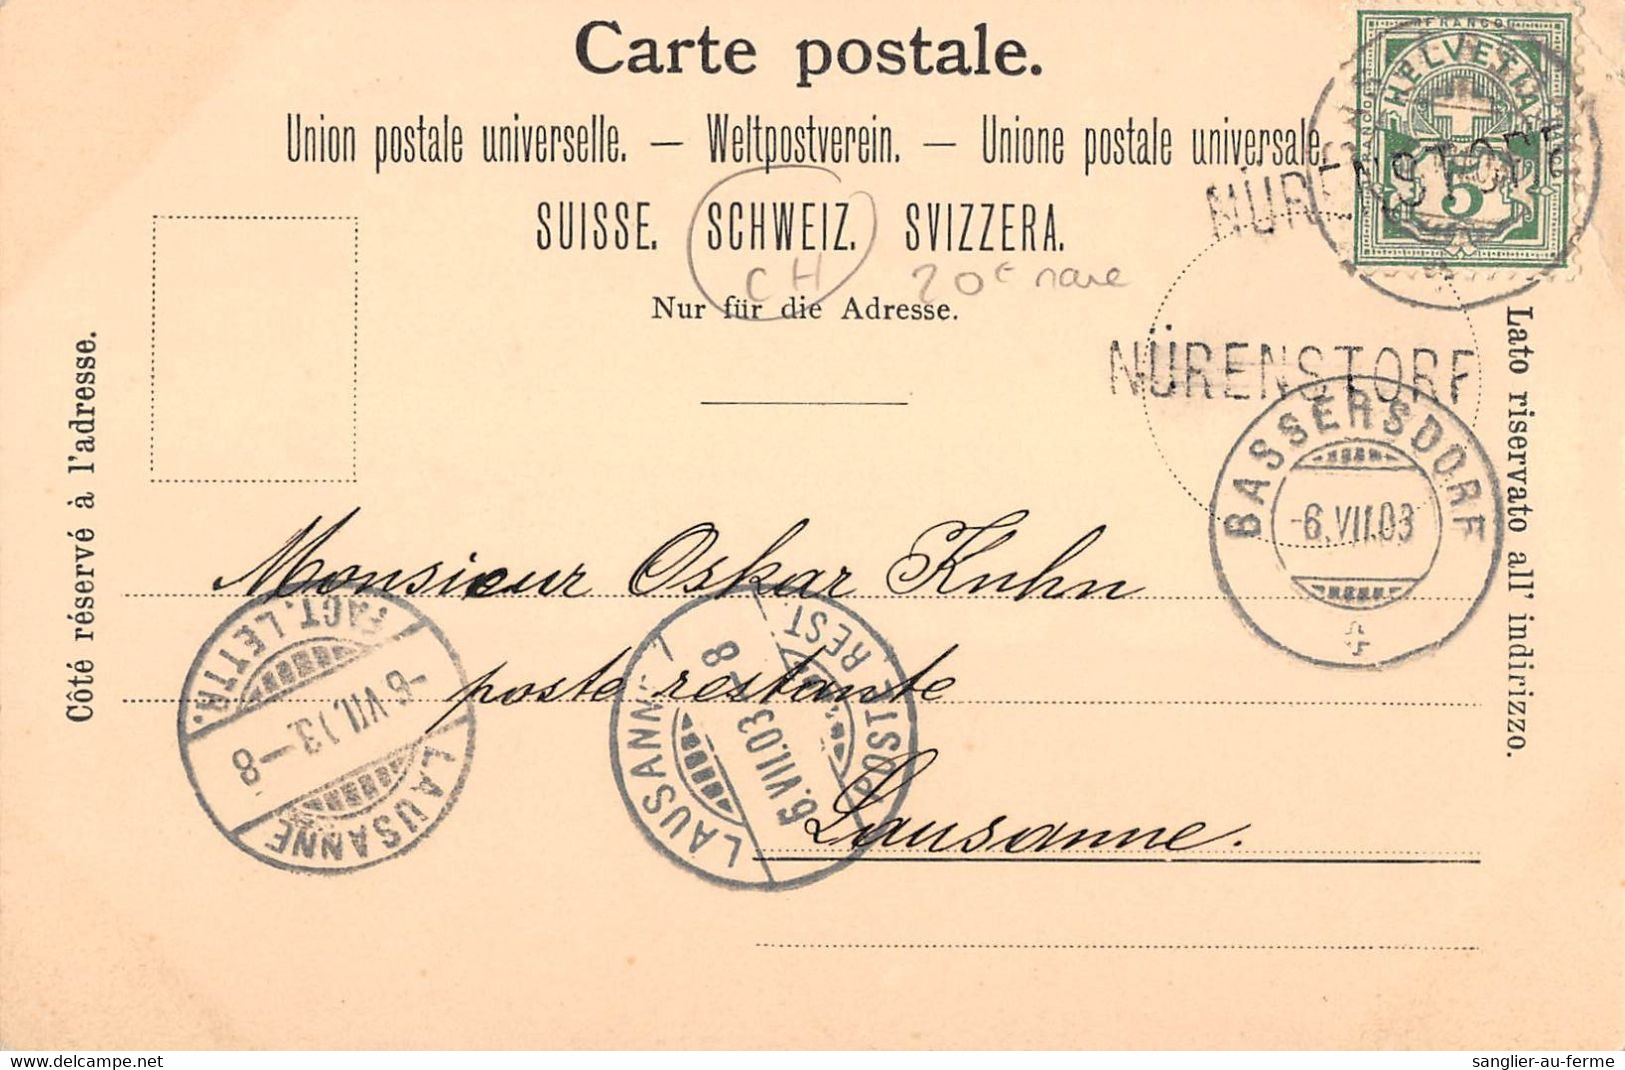 Carte postale.
Union postale universelle. — Weltpostverein. — Unione postale universale.
SUISSE. SCHWEIZ. SVIZZERA.
CH 20€ rare
Nur für die Adresse.
FRANCO
HELVETIA
FRANCO
5
NÜRENSTORF
NÜRENSTORF
BASSERSDORF
-6.VII.03
Côté réservé à l'adresse.
Lato riservato all' indirizzo.
Monsieur Oskar Kuhn
poste restante
Lausanne.
FACT. LETTR.
-6 VII. 03.-8
LAUSANNE
LAUSANNE
6.VII.03 - 8
POST. REST.
delcampe.net
sanglier-au-ferme